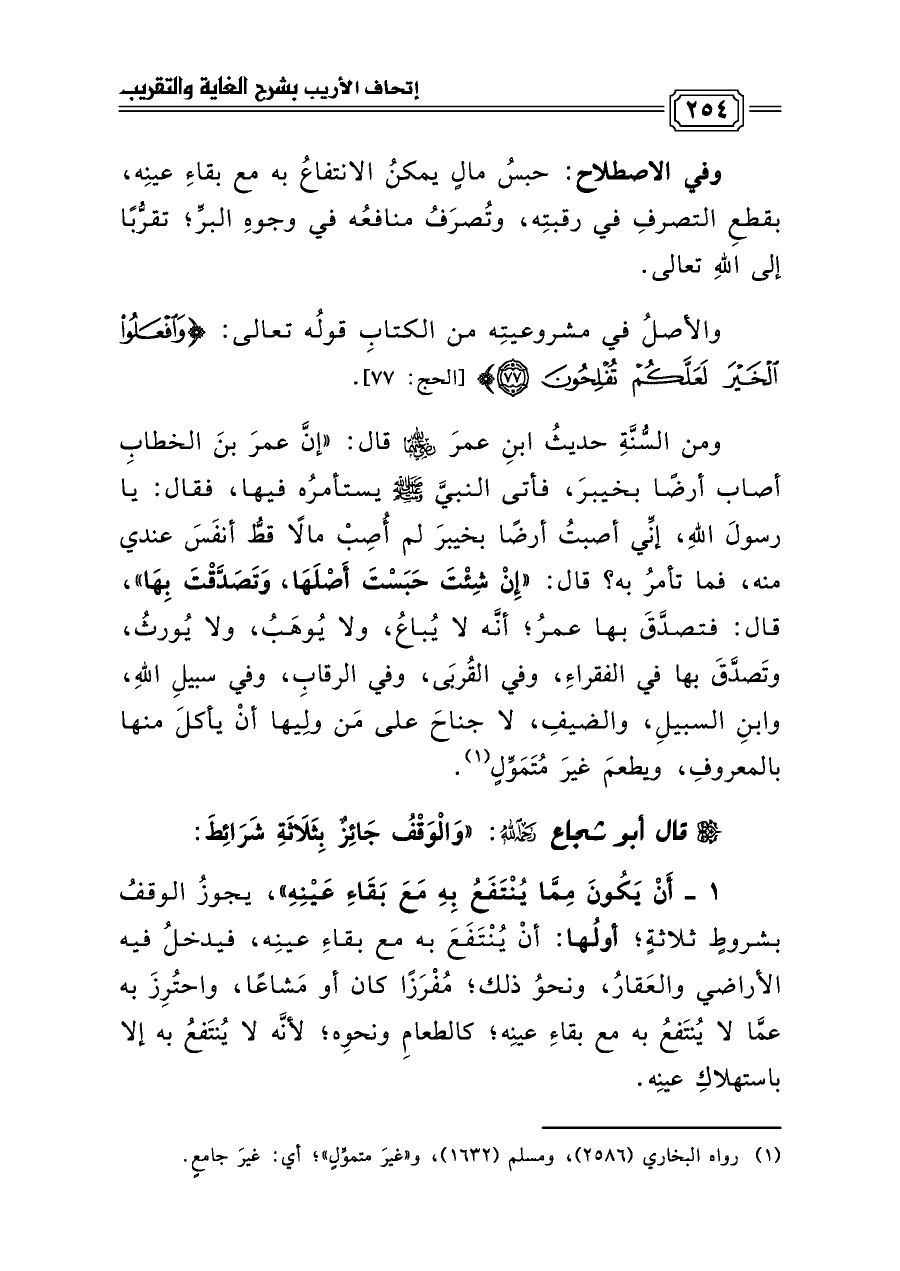 إتحاف الأريب بشرح الغاية والتقريب
٢٥٤
وفي الاصطلاح: حبسُ مالٍ يمكنُ الانتفاعُ به مع بقاءِ عينِه،
بقطعِ التصرفِ في رقبتِه، وتُصرَفُ منافعُه في وجوهِ البرِّ؛ تقرُّبًا
إلى اللهِ تعالى.
والأصلُ في مشروعيتِه من الكتابِ قولُه تعالى: ﴿وَٱفۡعَلُواْ
ٱلۡخَيۡرَ لَعَلَّكُمۡ تُفۡلِحُونَ ٧٧﴾ [الحج: ٧٧].
ومن السُّنَّةِ حديثُ ابنِ عمرَ رضي الله عنهما قال: «إنَّ عمرَ بنَ الخطابِ
أصاب أرضًا بخيبرَ، فأتى النبيَّ ﷺ يستأمرُه فيها، فقال: يا
رسولَ اللهِ، إنِّي أصبتُ أرضًا بخيبرَ لم أُصِبْ مالًا قطُّ أنفَسَ عندي
منه، فما تأمرُ به؟ قال: «إِنْ شِئْتَ حَبَسْتَ أَصْلَهَا، وَتَصَدَّقْتَ بِهَا»،
قال: فتصدَّقَ بها عمرُ؛ أنَّه لا يُباعُ، ولا يُوهَبُ، ولا يُورثُ،
وتَصدَّقَ بها في الفقراءِ، وفي القُربَى، وفي الرقابِ، وفي سبيلِ اللهِ،
وابنِ السبيلِ، والضيفِ، لا جناحَ على مَن ولِيها أنْ يأكلَ منها
بالمعروفِ، ويطعمَ غيرَ مُتَمَوِّلٍ(١).
قال أبو شجاع رحمه الله: «وَالْوَقْفُ جَائِزٌ بِثَلَاثَةِ شَرَائِطَ:
١ ـ أَنْ يَكُونَ مِمَّا يُنْتَفَعُ بِهِ مَعَ بَقَاءِ عَيْنِهِ»، يجوزُ الوقفُ
بشروطٍ ثلاثةٍ؛ أولُها: أنْ يُنْتَفَعَ به مع بقاءِ عينِه، فيدخلُ فيه
الأراضي والعَقارُ، ونحوُ ذلك؛ مُفْرَزًا كان أو مَشاعًا، واحتُرِزَ به
عمَّا لا يُنتَفعُ به مع بقاءِ عينِه؛ كالطعامِ ونحوِه؛ لأنَّه لا يُنتَفعُ به إلا
باستهلاكِ عينِه.
(١) رواه البخاري (٢٥٨٦)، ومسلم (١٦٣٢)، و«غيرَ متموِّلٍ»؛ أي: غيرَ جامعٍ.